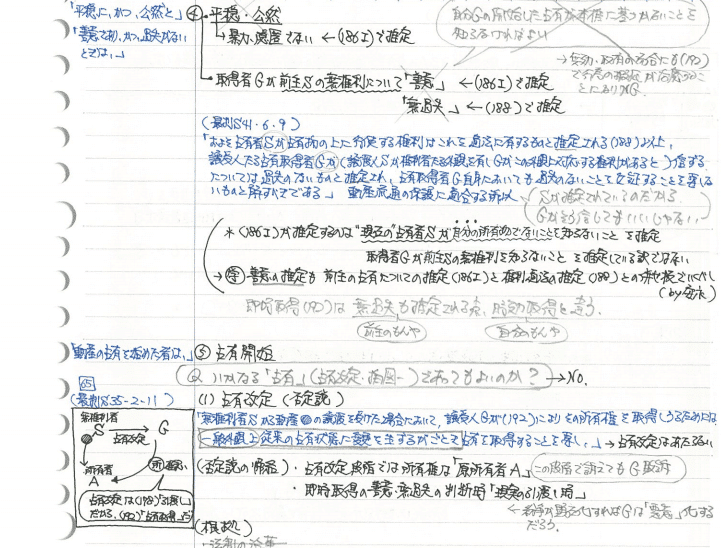 「平穏に、かつ、公然と」 ④ 平穏・公然
「善意であり、かつ、過失がない → 暴力、隠匿でない ←(186Ⅰ)で推定
とき は、」
知らなければよい
→ 取得者Gが前主Sの無権利について「善意」 ←(186Ⅰ)で推定
「無過失」 ←(188)で推定
(最判S41・6・9)
「およそ占有者Sが占有物の上に行使する権利はこれを適法に有するものと推定される(188)以上、
譲受人たる占有取得者Gが(譲渡人Sが権利者たる外観を有し、Gがこの外観に対応する権利があると)信ずる
については過失のないものと推定され、占有取得者G自身においても過失のないことを立証することを要しな
いものと解すべきである」 動産流通の保護に適合する所以
Sが推定されているのだから、
Gが立証しなくてもいいじゃない
* (186Ⅰ)が推定するのは "現在の" 占有者Sが自分の所有物でないことを知らないこと を推定
取得者Gが前主Sの無権利を知らないこと を推定している訳ではない
→ 善意の推定も 前主の占有についての推定(186Ⅰ)と権利適法の推定(188)との
即時取得(192)は 無過失も推定される点、時効取得と違う。
前主のもんや 自分のもんや
「動産の占有を始めた者は、」 ⑤ 占有開始
Q いかなる「占有」(占有改定・指図…)であってもよいのか? → No.
65
(最判S35・2・11) (1) 占有改定 (否定説)
無権利者
S → G
占有改定
所有者
A
占有改定は(178)「引渡し」
だが、(192)「占有取得」
「無権利者Sから動産の譲渡を受けた場合において、譲受人Gが(192)によりその所有権を取得しうるためには、
一般外観上従来の占有状態に変更を生ずるがごとき占有を取得することを要し、」→占有改定はあたらない
(否定説の帰結) ・占有改定段階では所有権「原所有者A」 この段階で訴えてもG敗訴
・即時取得の善意・無過失の判断時「現実の引渡し時」
← 紛争が顕在化すればGは「悪意」化する
だろう。
(根拠)